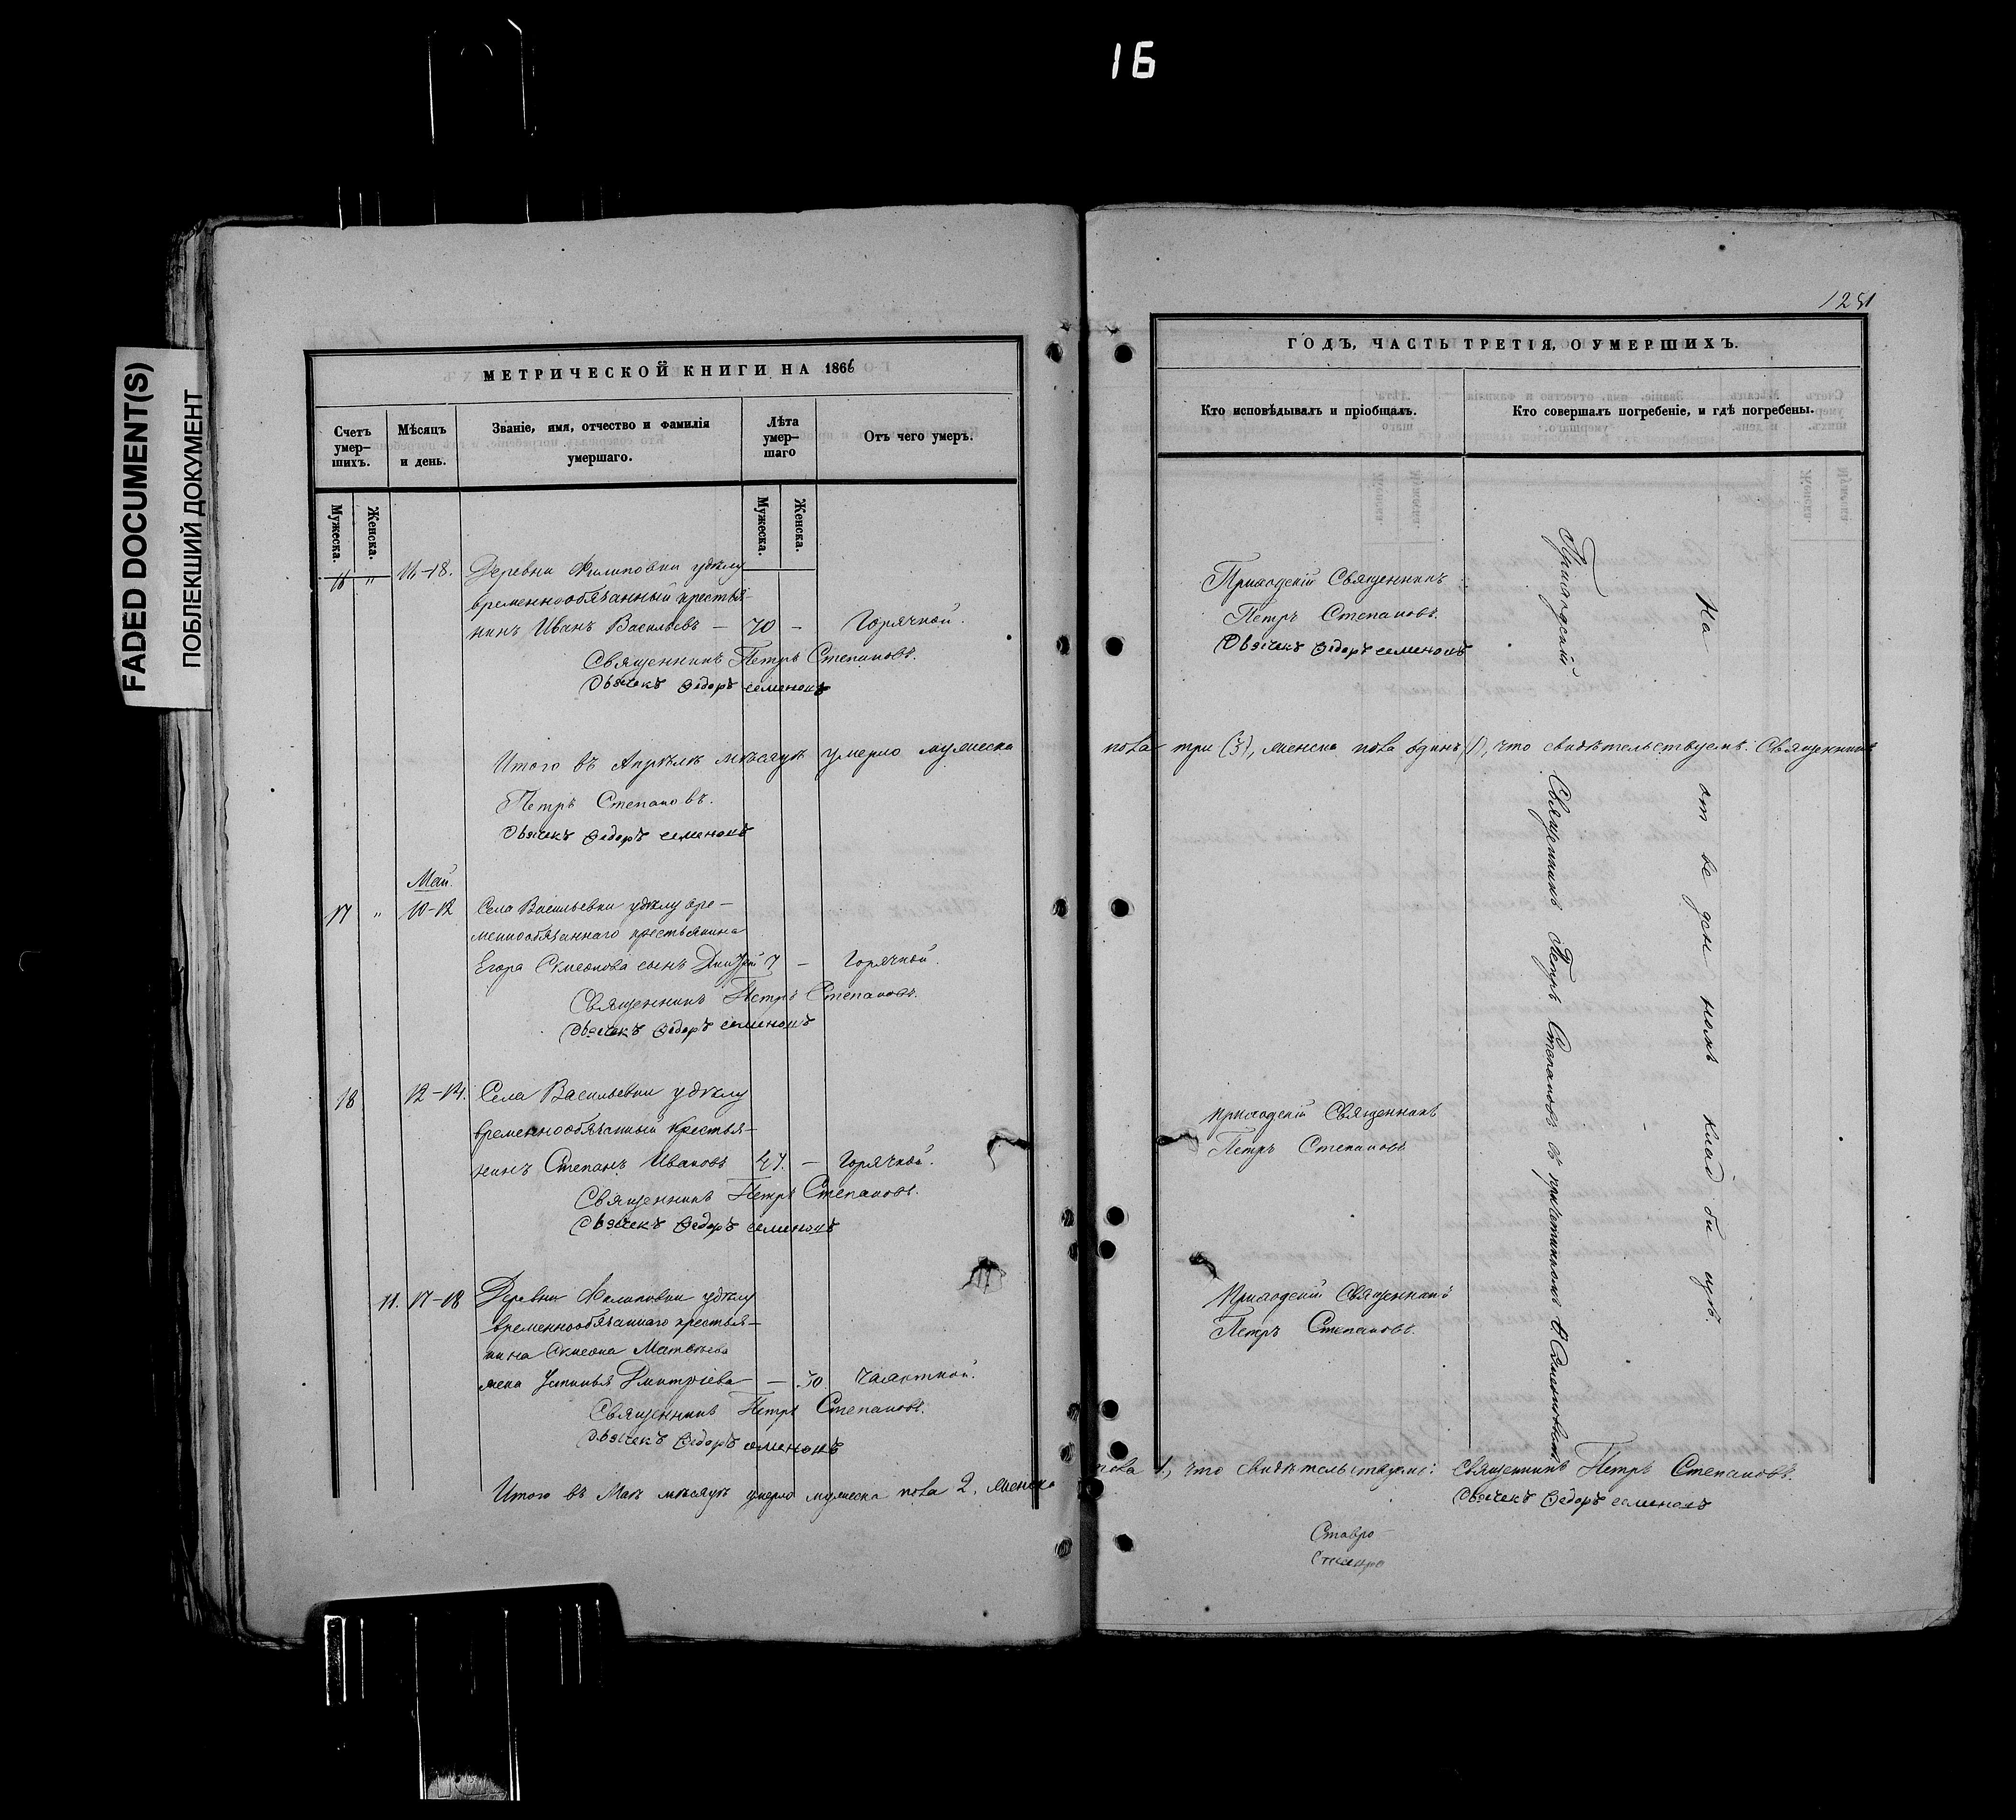 16
FADED DOCUMENT(S)
ПОБЛЕКШИЙ ДОКУМЕНТ
МЕТРИЧЕСКОЙ КНИГИ НА 1866
Счетъ умер-шихъ.
Мѣсяцъ и день.
Званіе, имя, отчество и фамилія умершаго.
Лѣта умер-шаго
Отъ чего умеръ.
Мужеска.
Женска.
Мужеска.
Женска.
16 " 16-18. Деревни Филиповки удѣлу
временнообязанный крестья-
нинъ Иванъ Васильевъ — 70 — Горячкой.
Священникъ Петръ Степановъ.
Дьячекъ Ѳедоръ Семеновъ
Итого въ Апрѣлѣ мѣсяцѣ умерло мужеска
Петръ Степановъ.
Дьячекъ Ѳедоръ Семеновъ
Май.
17 " 10-12 Села Васильевки удѣлу вре-
меннообязаннаго крестьянина
Егора Симеонова сынъ 7 — Горячкой.
Священникъ Петръ Степановъ.
Дьячекъ Ѳедоръ Семеновъ
18 12-14. Села Васильевки удѣлу
временнообязанный крестья-
нинъ Степанъ Ивановъ 47. — Горячкой.
Священникъ Петръ Степановъ.
Дьячекъ Ѳедоръ Семеновъ
11. 17-18 Деревни Филиповки удѣлу
временнообязаннаго крестья-
нина Симеона Матвѣева
жена Устинья Дмитріева — 30 Чахоткой.
Священникъ Петръ Степановъ.
Дьячекъ Ѳедоръ Семеновъ
Итого въ Маѣ мѣсяцѣ умерло мужеска пола 2, женска
1281
ГОДЪ, ЧАСТЬ ТРЕТІЯ, О УМЕРШИХЪ.
Кто исповѣдывалъ и пріобщалъ.
Кто совершалъ погребеніе, и гдѣ погребены.
Приходскій Священникъ
Петръ Степановъ.
Дьячекъ Ѳедоръ Семеновъ
пола три (3), женска пола одинъ (1), что свидѣтельствуемъ: Священникъ
Приходскій Священникъ
Петръ Степановъ
Приходскій Священникъ
Петръ Степановъ.
Приходскій Священникъ Петръ Степановъ съ причетникомъ Ѳ. Семеновымъ
На отведенномъ кладбищѣ.
пола 1, что свидѣтельствуемъ: Священникъ Петръ Степановъ.
Дьячекъ Ѳедоръ Семеновъ
Ставро-